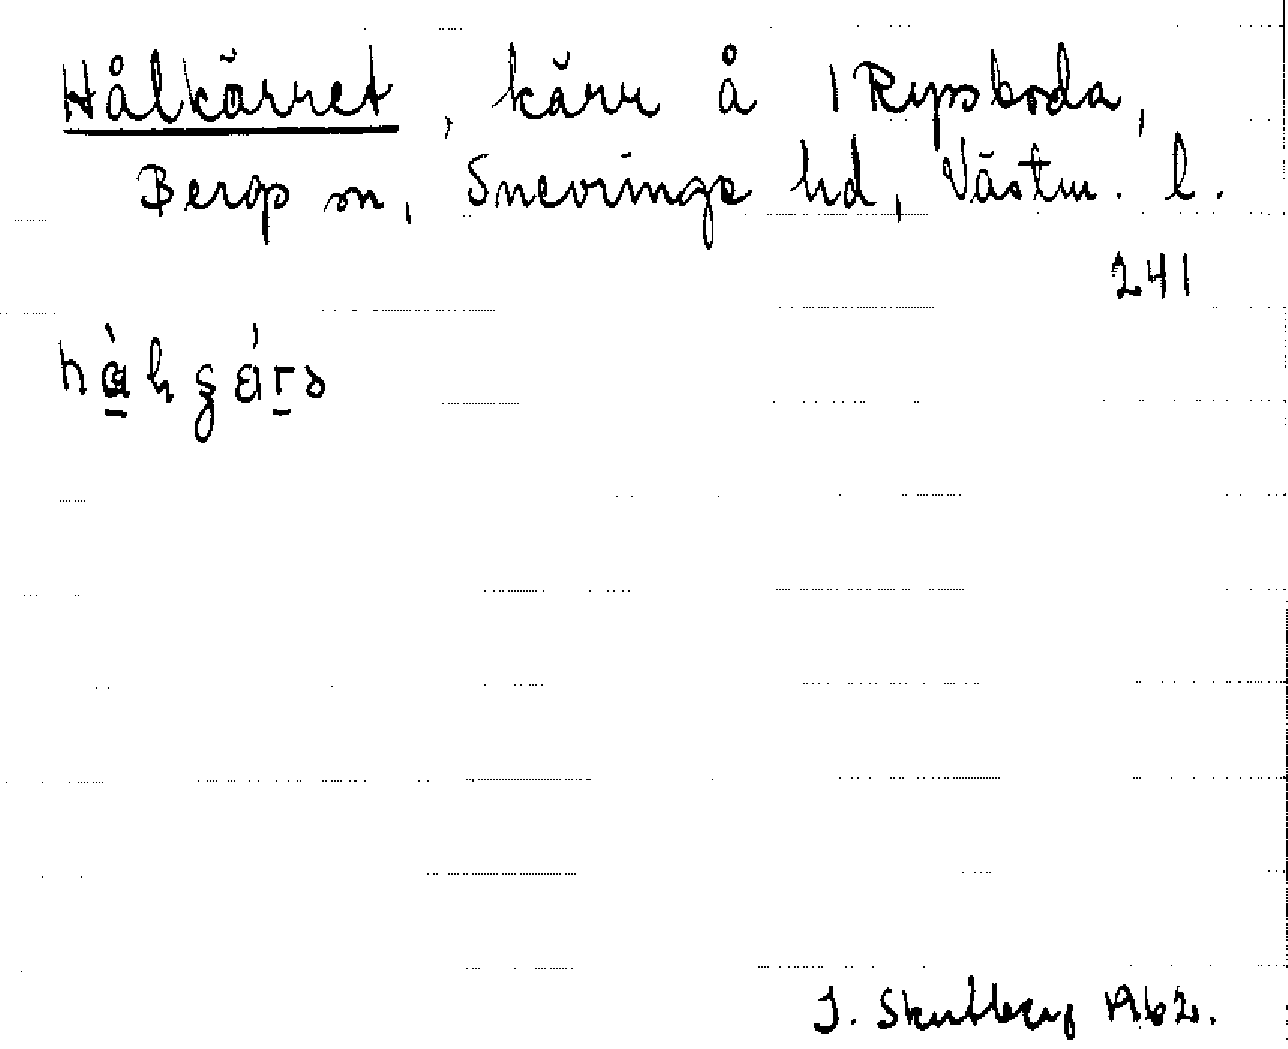 Hålkärret, kärr å 1 Rypsboda,
Bergs sn, Snevringe hd, Västm. l.
241
J. Skutberg 1962.